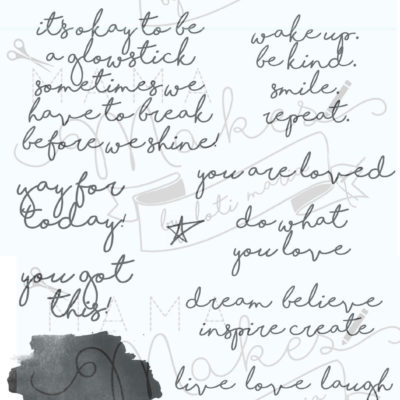 it's okay to be
a glowstick
sometimes we
have to break
before we shine!
wake up.
be kind.
smile.
repeat.
yay for
today!
you are loved
do what
you love
you got
this!
dream believe
inspire create
live love laugh
MAMA
Makes
MAMA
Makes